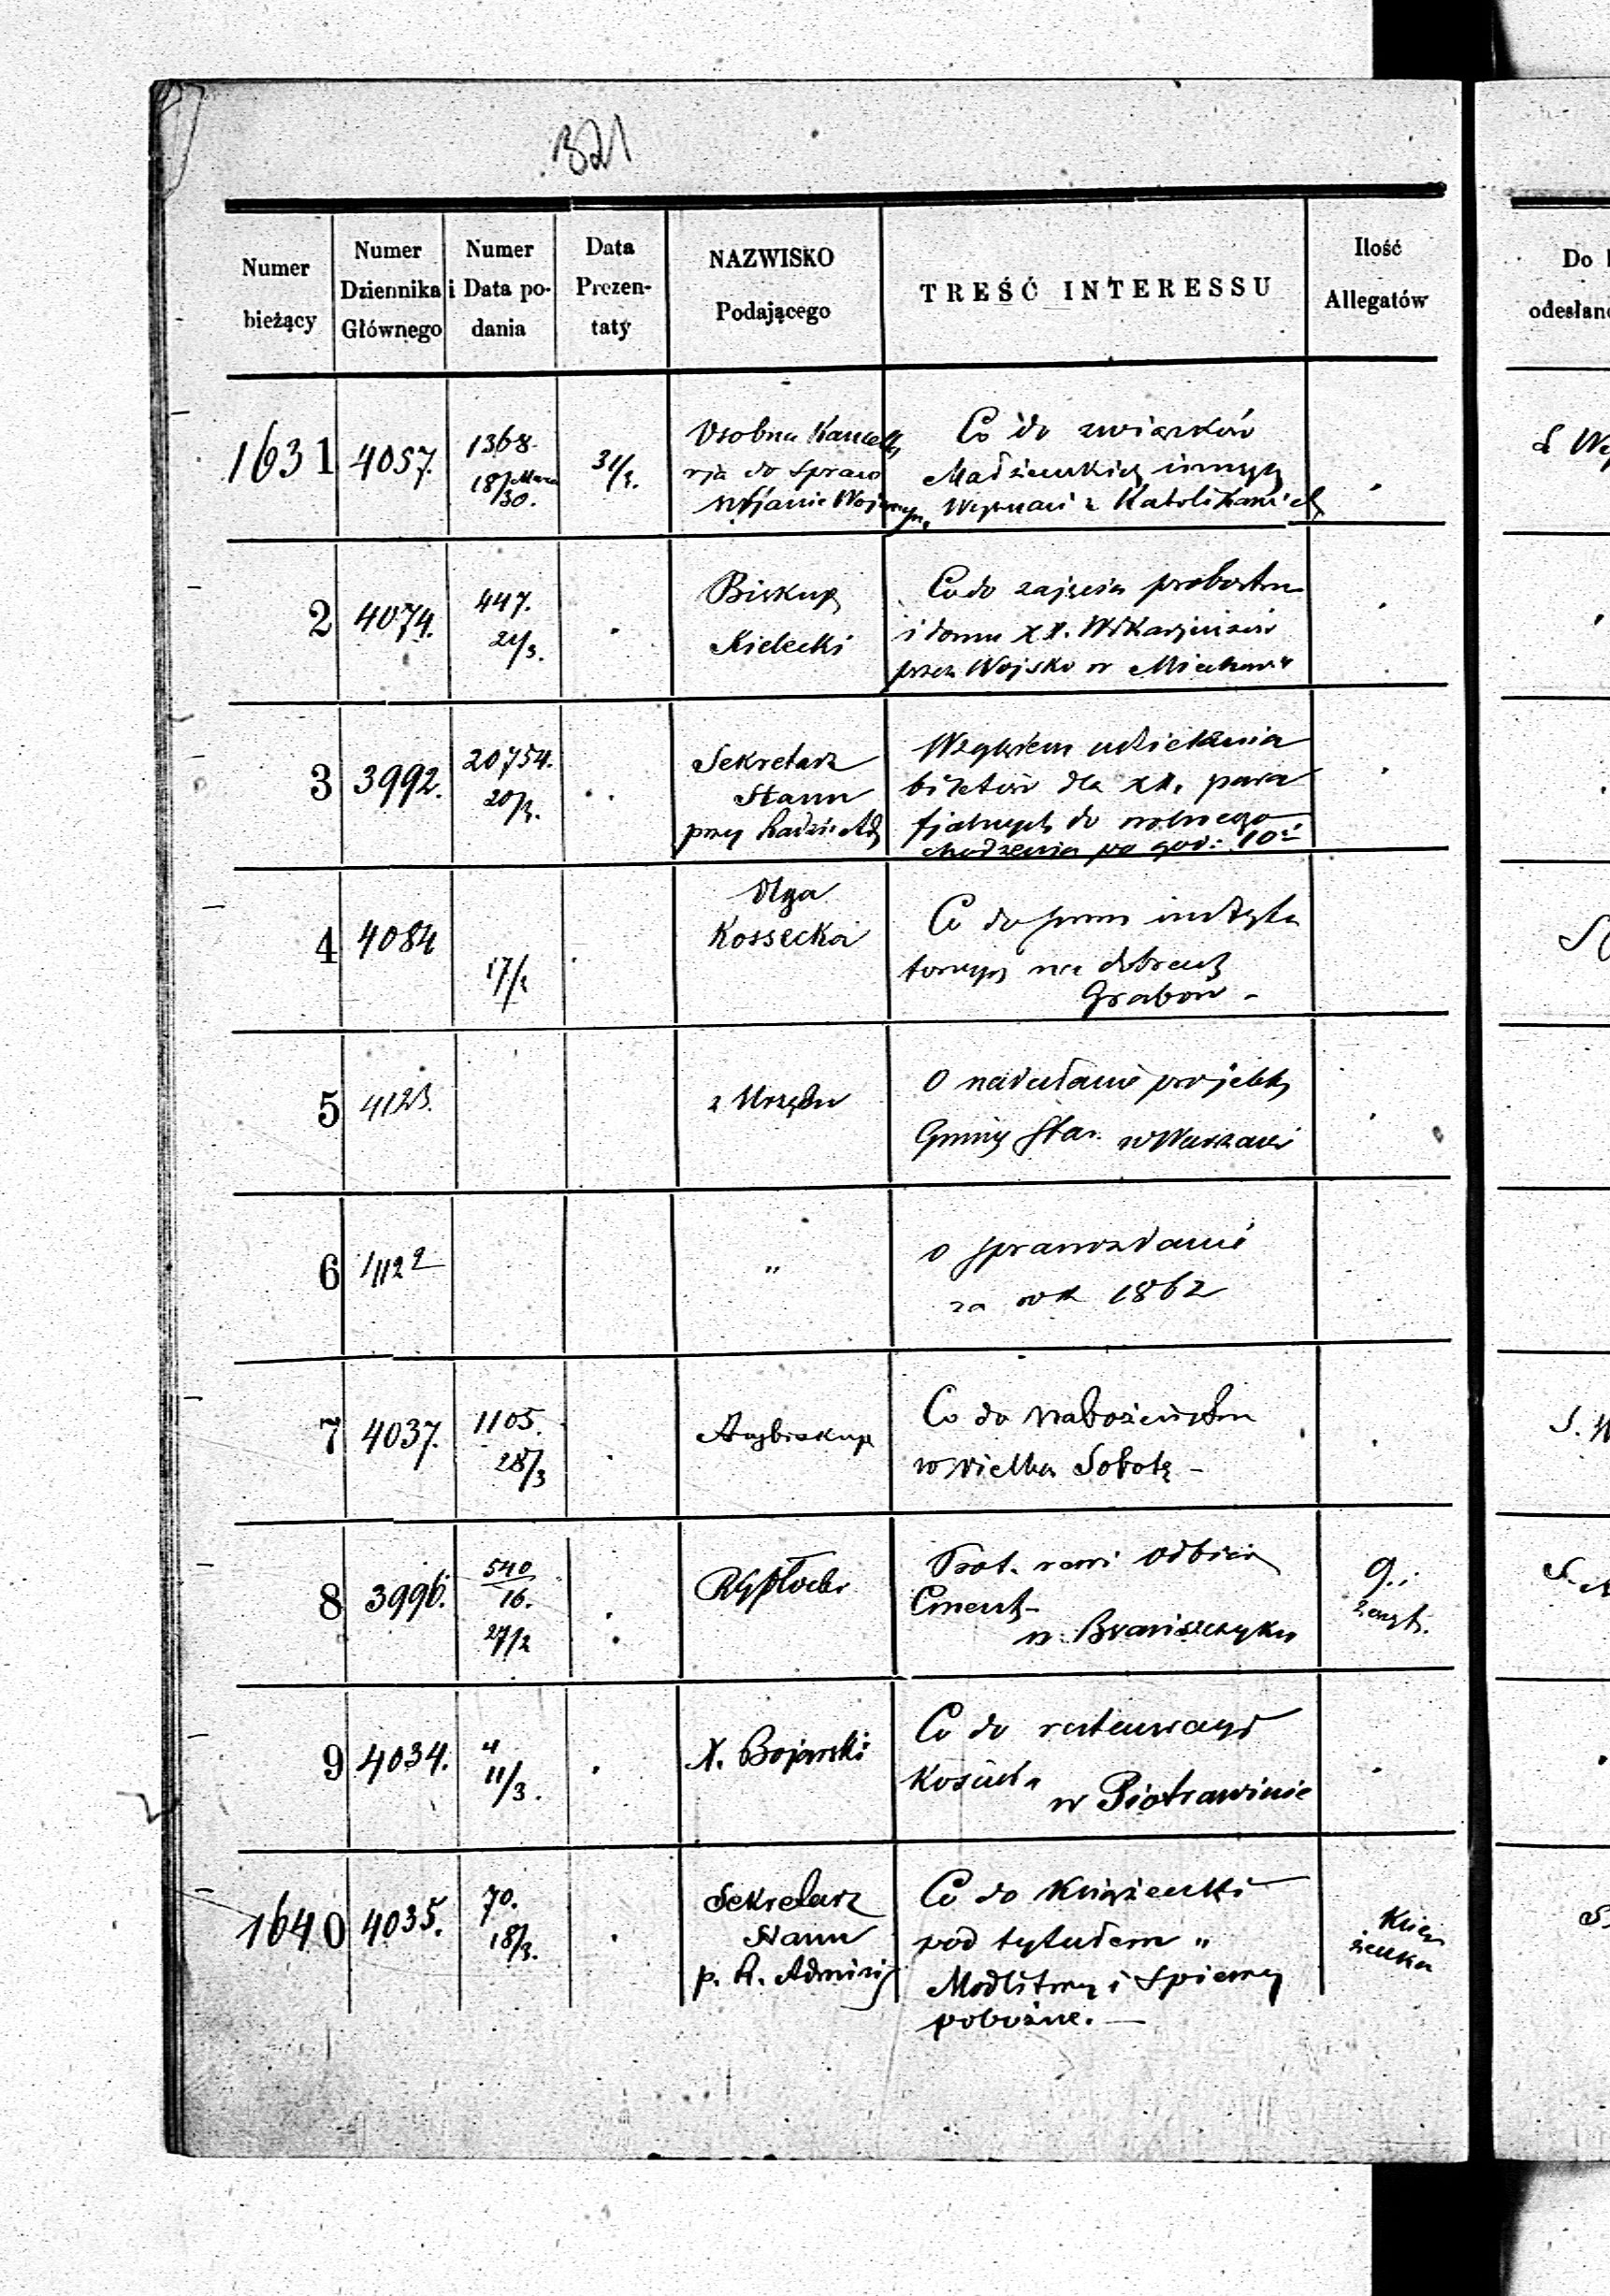 321
Numer bieżący
Numer Dziennika Głównego
Numer i Data podania
Data Prezentaty
NAZWISKO Podającego
TREŚĆ INTERESSU
Ilość Allegatów
Do
odesłan
1631 4057. 1368. 18/30 Marca 31/3.
Osobna Kancella
rja do Spraw
Stanie Wojennym
Co do związków
Małżeńskich innych
Wyznań z Katolikami
2 4074. 447. 21/3.
Biskup
Kielecki
Co do zajęcia probostwa
i domu XX. Wikarjuszów
przez Wojsko w Miechowie
3 3992. 20754. 20/3.
Sekretarz
Stanu
przy Radzie Ad
Względem udzielania
biletów dla XX. para
fjalnych do wolnego
chodzenia po god: 10éj
4 4084 17/3
Olga
Kossecka
Co do summ instytu
towych na dobrach
Grabów -
5 4123.
z Urzędu
O nadesłanie projektu
Gminy Star. w Warszawie
6 4122
"
o sprawozdanie
za rok 1862
7 4037. 1105. 28/3
Arcybiskup
Co do Nabożeństwa
w wielką Sobotę -
8 3996. 540/16. 27/2
RGPłocki
Prot. rewi odbior
Cment-
w Brańszczyku
9.:
zeszyt.
9 4034. " 11/3.
X. Bojarski
Co do restauracyi
Kościoła
w Piotrawinie
1640 4035. 70. 18/3.
Sekretarz
Stanu
p. R. Adminis
Co do Książeczki
pod tytułem "
Modlitwy i Spiewy
pobożne. —
Książeczka